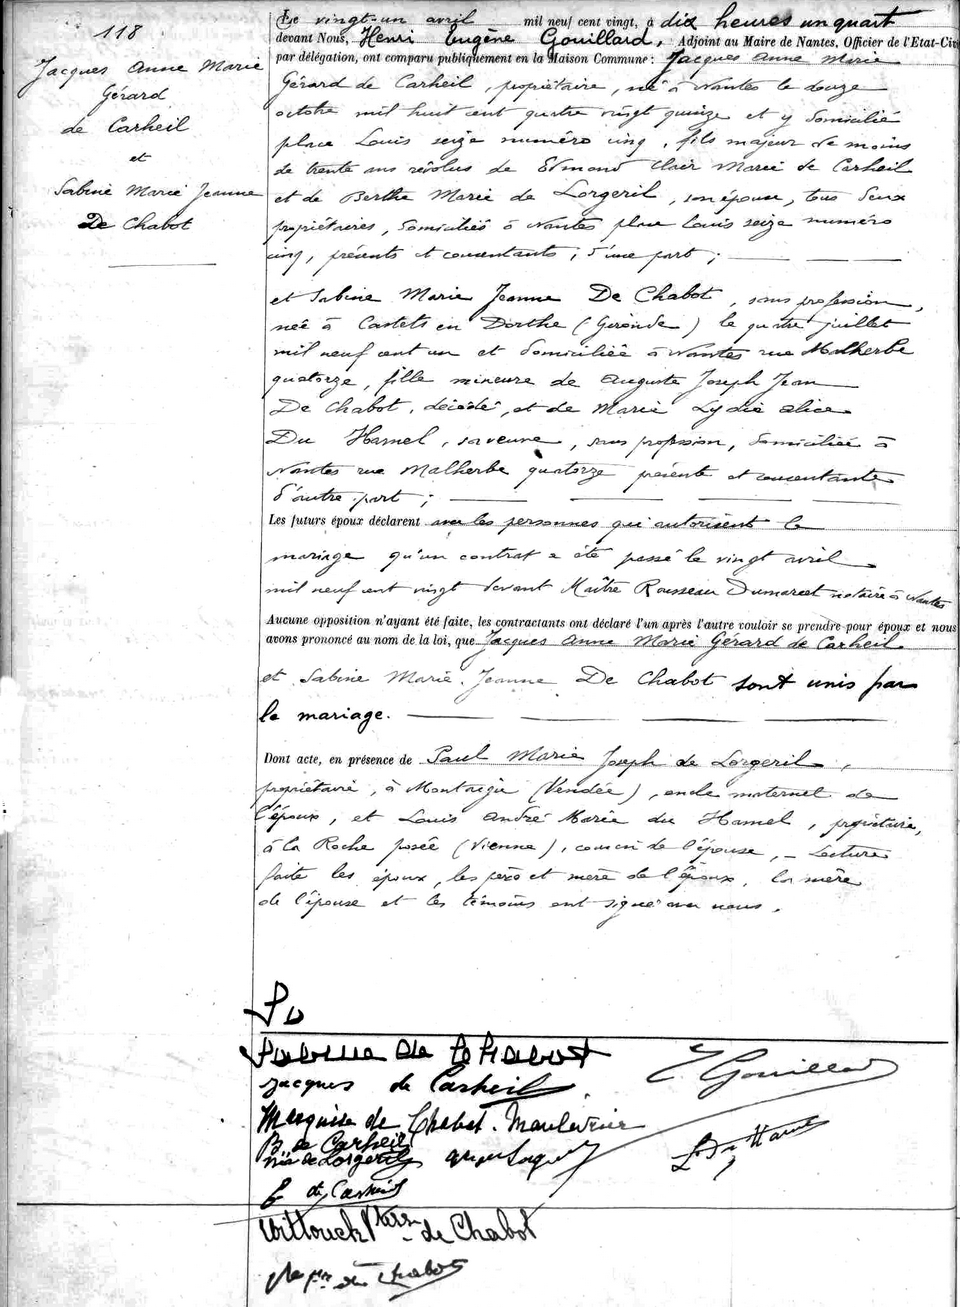 118
Jacques Anne Marie
Gérard
de Carheil
et
Sabine Marie Jeanne
De Chabot
Le vingt-un avril mil neuf cent vingt, à dix heures un quart
devant Nous, Henri Eugène Gouillard, Adjoint au Maire de Nantes, Officier de l'Etat-Civil
par délégation, ont comparu publiquement en la Maison Commune : Jacques Anne Marie
Gérard de Carheil, propriétaire, né à Nantes le douze
octobre mil huit cent quatre vingt quinze et y domicilié
place Louis seize numéro cinq, fils majeur de moins
de trente ans révolus de Edmond Clair Marie de Carheil
et de Berthe Marie de Lorgeril, son épouse, tous deux
propriétaires, domiciliés à Nantes, place Louis seize numéro
cinq, présents et consentants, d'une part ;
et Sabine Marie Jeanne De Chabot, sans profession,
née à Castets en Dorthe (Gironde) le quatre juillet
mil neuf cent un et domiciliée à Nantes rue Malherbe
quatorze, fille mineure de Auguste Joseph Jean
De Chabot, décédé, et de Marie Lydie Alice
Du Hamel, sa veuve, sans profession, domiciliée à
Nantes rue Malherbe quatorze présente et consentante
d'autre part ;
Les futurs époux déclarent avec les personnes qui autorisent le
mariage qu'un contrat a été passé le vingt avril
mil neuf cent vingt devant Maître Rousseau Dumarcet notaire à Nantes
Aucune opposition n'ayant été faite, les contractants ont déclaré l'un après l'autre vouloir se prendre pour époux et nous
avons prononcé au nom de la loi, que Jacques Anne Marie Gérard de Carheil
et Sabine Marie Jeanne De Chabot sont unis par
le mariage.
Dont acte, en présence de Paul Marie Joseph de Lorgeril,
propriétaire, à Montaigu (Vendée), oncle maternel de
l'époux, et Louis André Marie du Hamel, propriétaire,
à la Roche posée (Vienne), cousin de l'épouse, - Lecture
faite les époux, les père et mère de l'époux, la mère
de l'épouse et les témoins ont signé avec nous.
Sabine de Chabot
Jacques de Carheil
E Gouillard
Marquise de Chabot
B. de Carheil
née de Lorgeril
E de Carheil
Wittouck de Chabot
de Chabot